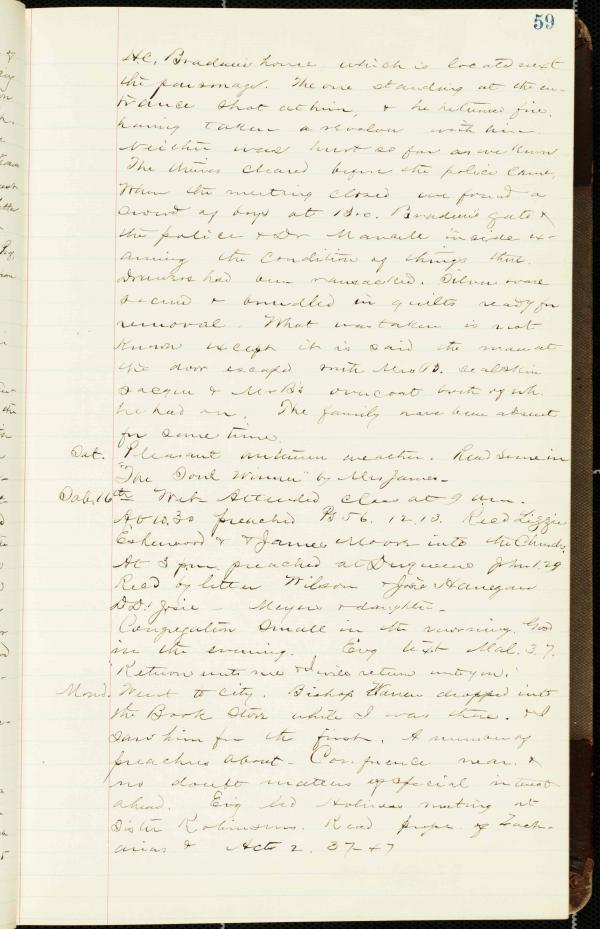 59
H.C. Braden's house which is located next
the parsonage. The one standing at the en-
trance shot at him, & he returned fire,
having taken a revolver with him.
Neither was hurt so far as we know
The thieves cleared before the police came.
When the meeting closed we found a
crowd of boys at Bro. Braden's gate &
the police & Dr inside ex-
amining the condition of things there.
Drawers had been ransacked. Silver ware
& bundled in quilts ready for
removal. What was taken is not
known except it is said the man at
the door escaped with Mrs B. sealskin
sacque & Mr B's overcoat both of wh.
he had on. The family have been absent
for some time.
Sat. Pleasant autumn weather. Read some in
"The Soul Winner" by Mrs James.
Sab. 16th Attended class at 9 am.
At 10.30 preached Ps 56. 12. 13. Rec'd Lizzie
& James Moore into the Church.
At 3 pm. preached at Duquesne John 1.29
Rec'd by letter Wilson & Josie
Josie - & daughter -
Congregation small in the morning. Good
in the evening. Evg text Mal. 3.7.
"Return unto me & I will return unto you."
Mond. Went to city. Bishop Warren dropped into
the Book Store while I was there. & I
saw him for the first. A number of
preachers about - Conference near. &
no doubt matters of special interest
ahead. Evg led Holiness meeting at
Sister Robinson's. Read proph. of Zach-
arias & Acts 2. 37-47